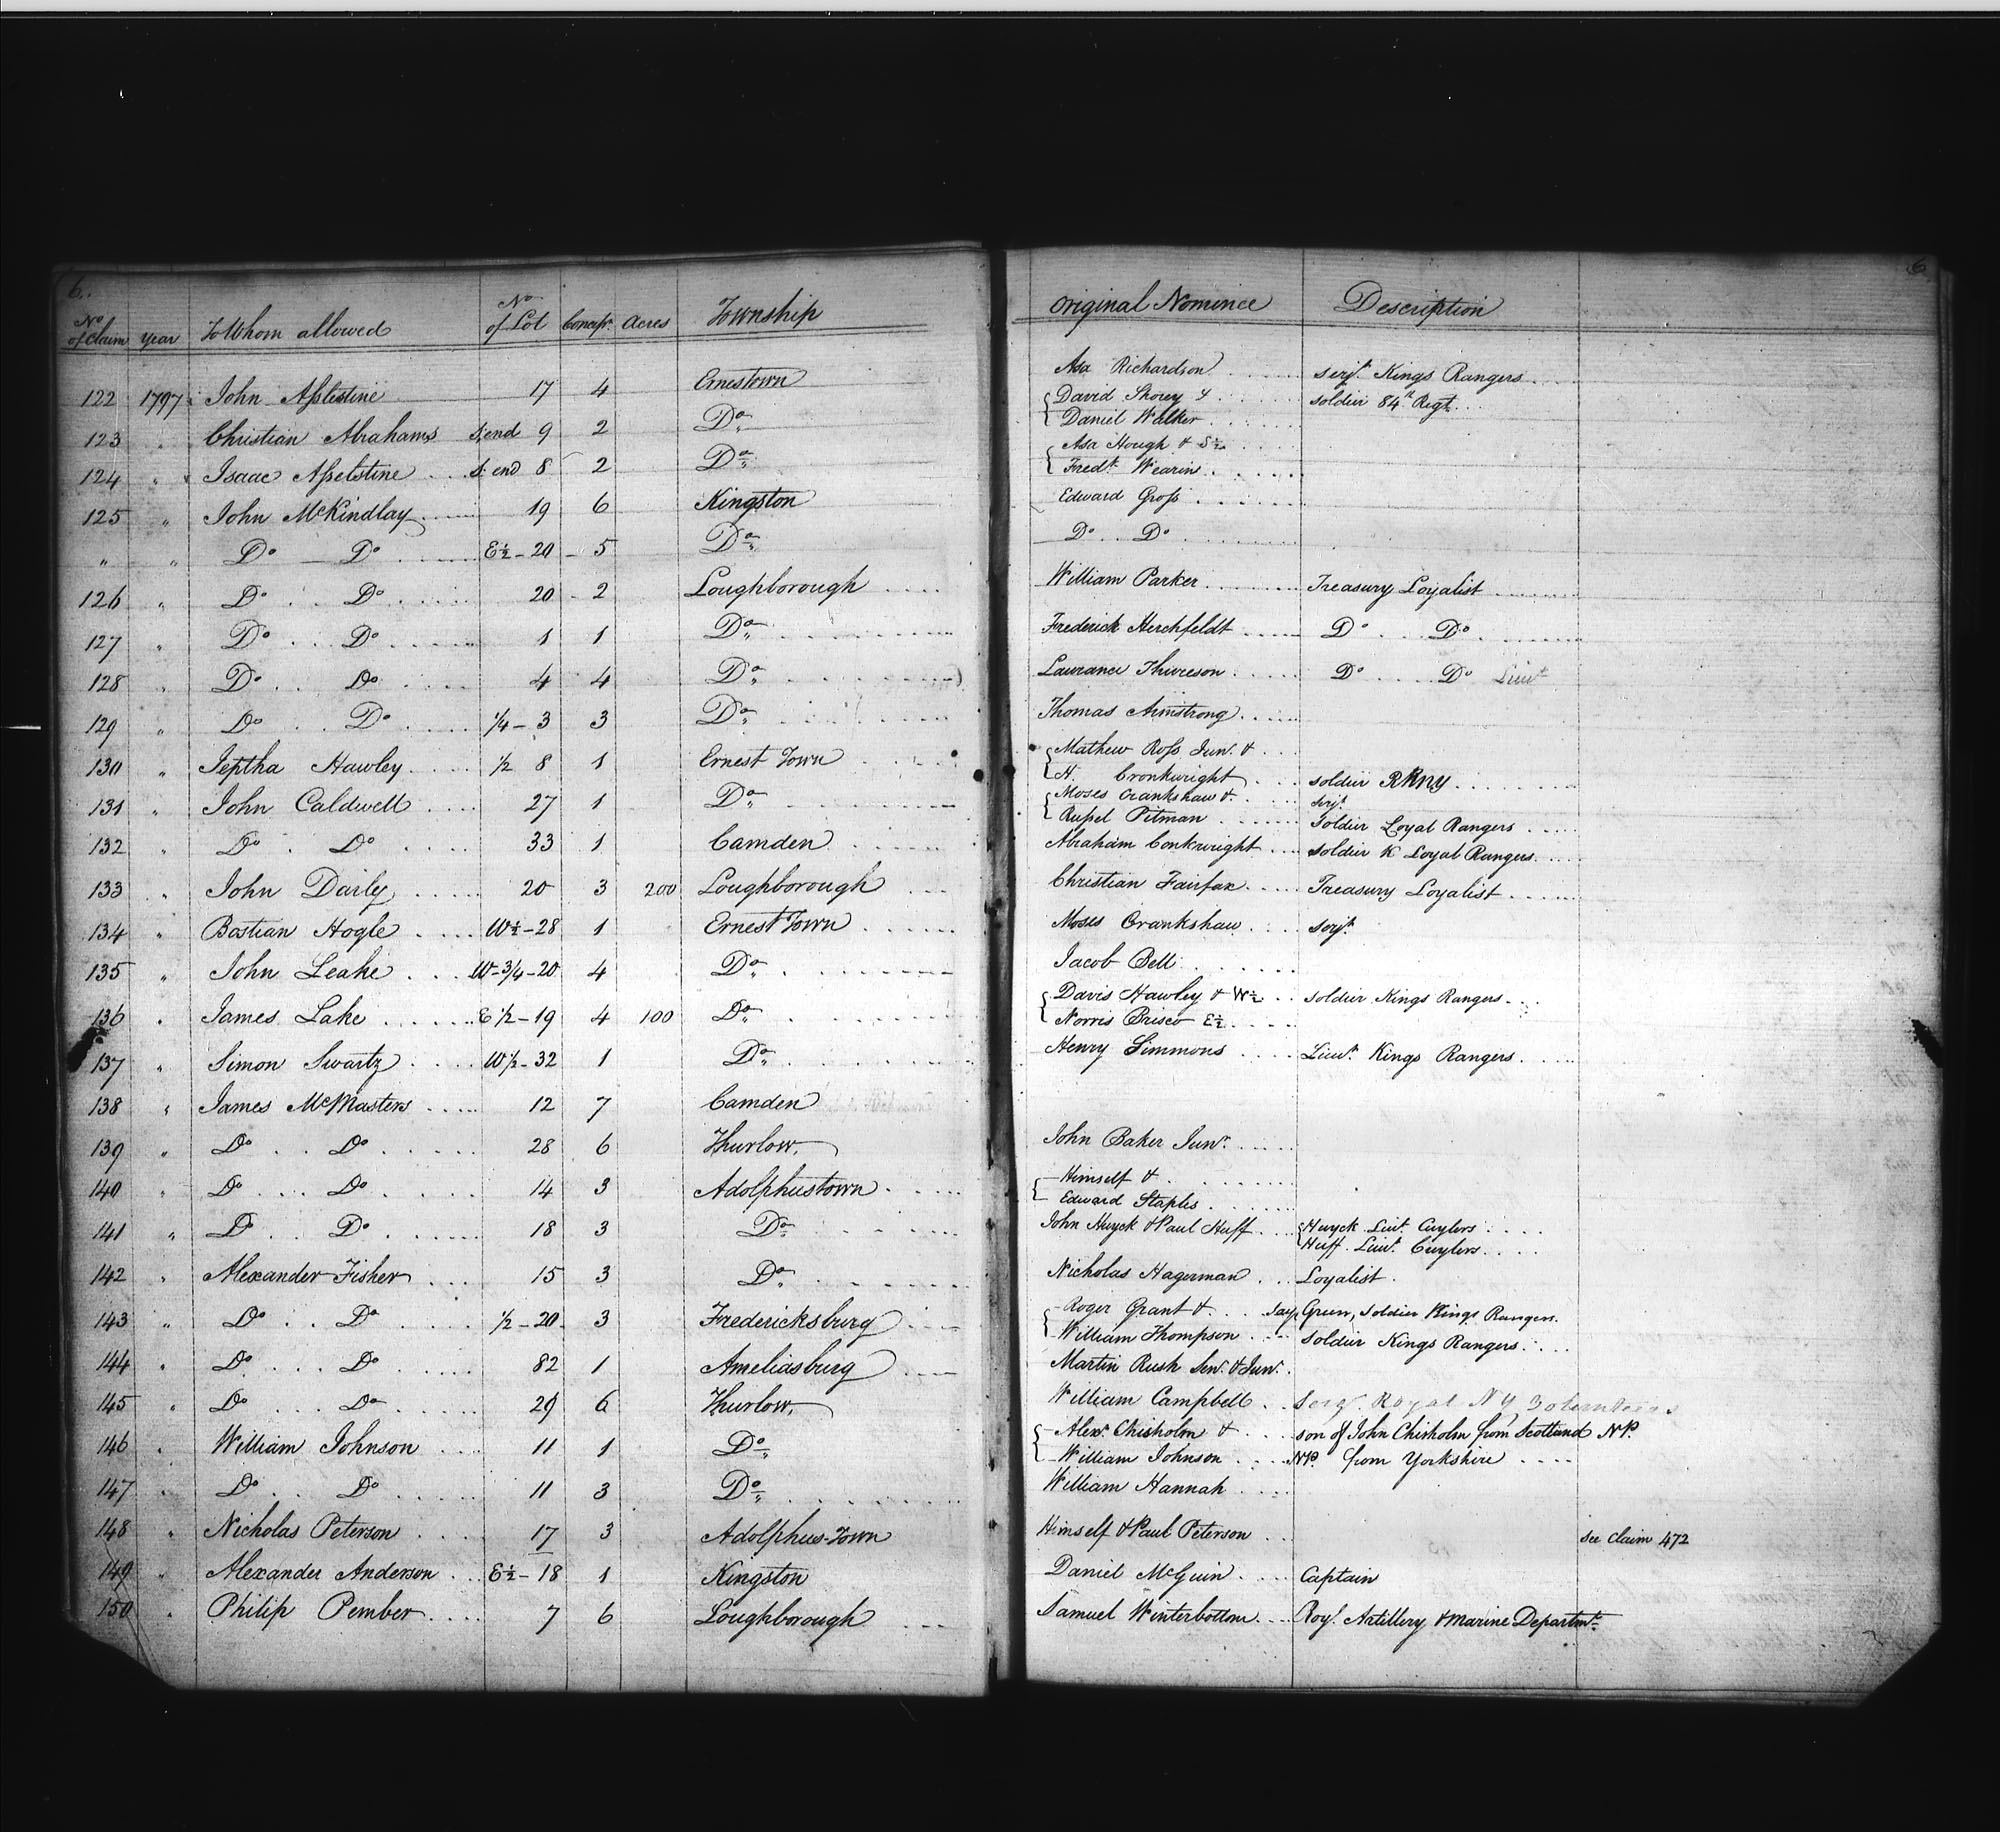 6.
No of Claim Year To Whom allowed No of Lot Concessn. Acres Township
122 1797 John Asselstine 17 4 Ernestown
123 " Christian Abrahams S. end 9 2 Do
124 " Isaac Asselstine S. end 8 2 Do
125 " John McKindlay 19 6 Kingston
" " Do Do E½ - 20 - 5 Do
126 " Do Do 20 - 2 Loughborough
127 " Do Do 1 1 Do
128 " Do Do 4 4 Do
129 " Do Do ¼ - 3 3 Do
130 " Jeptha Hawley ½ 8 1 Ernest Town
131 " John Caldwell 27 1 Do
132 " Do Do 33 1 Camden
133 " John Daily 20 3 200 Loughborough
134 " Bastian Hogle W½ - 28 1 Ernest Town
135 " John Leake W - 3/4 - 20 4 Do
136 " James Lake E 1/2 - 19 4 100 Do
137 " Simon Swartz W 1/2 - 32 1 Do
138 " James McMasters 12 7 Camden
139 " Do Do 28 6 Thurlow
140 " Do Do 14 3 Adolphustown
141 " Do Do 18 3 Do
142 " Alexander Fisher 15 3 Do
143 " Do Do 1/2 - 20 3 Fredericksburg
144 " Do Do 82 1 Ameliasburg
145 " Do Do 29 6 Thurlow
146 " William Johnson 11 1 Do
147 " Do Do 11 3 Do
148 " Nicholas Peterson 17 3 Adolphus-Town
149 " Alexander Anderson E½ - 18 1 Kingston
150 " Philip Pember 7 6 Loughborough
6
Original Nominee Description
Asa Richardson Serjt. Kings Rangers
David Shorey & soldier 84th Regt.
Daniel Walker
Asa Hough & S½
Fredk. Wearins
Edward Gross
Do Do
William Parker Treasury Loyalist
Frederick Herchfeldt Do Do
Laurance Thureson Do Do Lieut
Thomas Armstrong
Mathew Ross Junr. &
H. Cronkwright soldier RRNY
Moses Crankshaw & serjt
Russel Pitman soldier Loyal Rangers
Abraham Conkwright soldier K Loyal Rangers
Christian Fairfax Treasury Loyalist
Moses Crankshaw serjt.
Jacob Bell
Davis Hawley & W½ soldier Kings Rangers
Norris Brisco E½
Henry Simmons Lieut. Kings Rangers
John Baker Junr.
Himself &
Edward Staples
John Huyck & Paul Huff Huyck Lieut. Cuylers
Huff Lieut. Cuylers
Nicholas Hagerman Loyalist
Roger Grant & says Grun, soldier Kings Rangers
William Thompson soldier Kings Rangers
Martin Rush Senr. & Junr.
William Campbell Sergt. Royal NY Volunteers
Alexr. Chisholm & son of John Chisholm from Scotland NP.
William Johnson NP. from Yorkshire
William Hannah
Himself & Paul Peterson see Claim 472
Daniel McGuin Captain
Samuel Winterbottom Royl. Artillery & Marine Departmt.